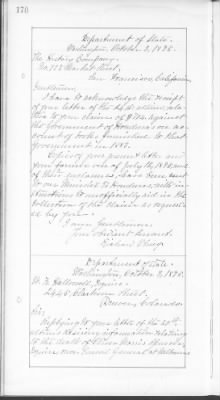 170
Department of State.
Washington, October 3, 1895.
The History Company,
No. 723 Market Street,
San Francisco, California.
Gentlemen:
I have to acknowledge the receipt
of your letter of the 24th ultimo, relative
to your claim of $ against the
Government of Honduras on account
of books furnished to that
government in 188
Copies of your present letter and
your former one of July 19, 189 and
of their enclosures, have been sent
to our Minister to Honduras, with instructions
to unofficially aid in the
collection of the claim as requested
by you.
I am, Gentlemen,
Your obedient servant,
Department of State.
Washington, October 3, 1895.
W. F. Hallowell, Esquire,
2445 Street,
Denver, Colorado.
Sir:
Replying to your letter of the 28th
ultimo desiring information relating
to the death of Oliver Morris Spencer,
Esquire, now Consul General at Melbourne